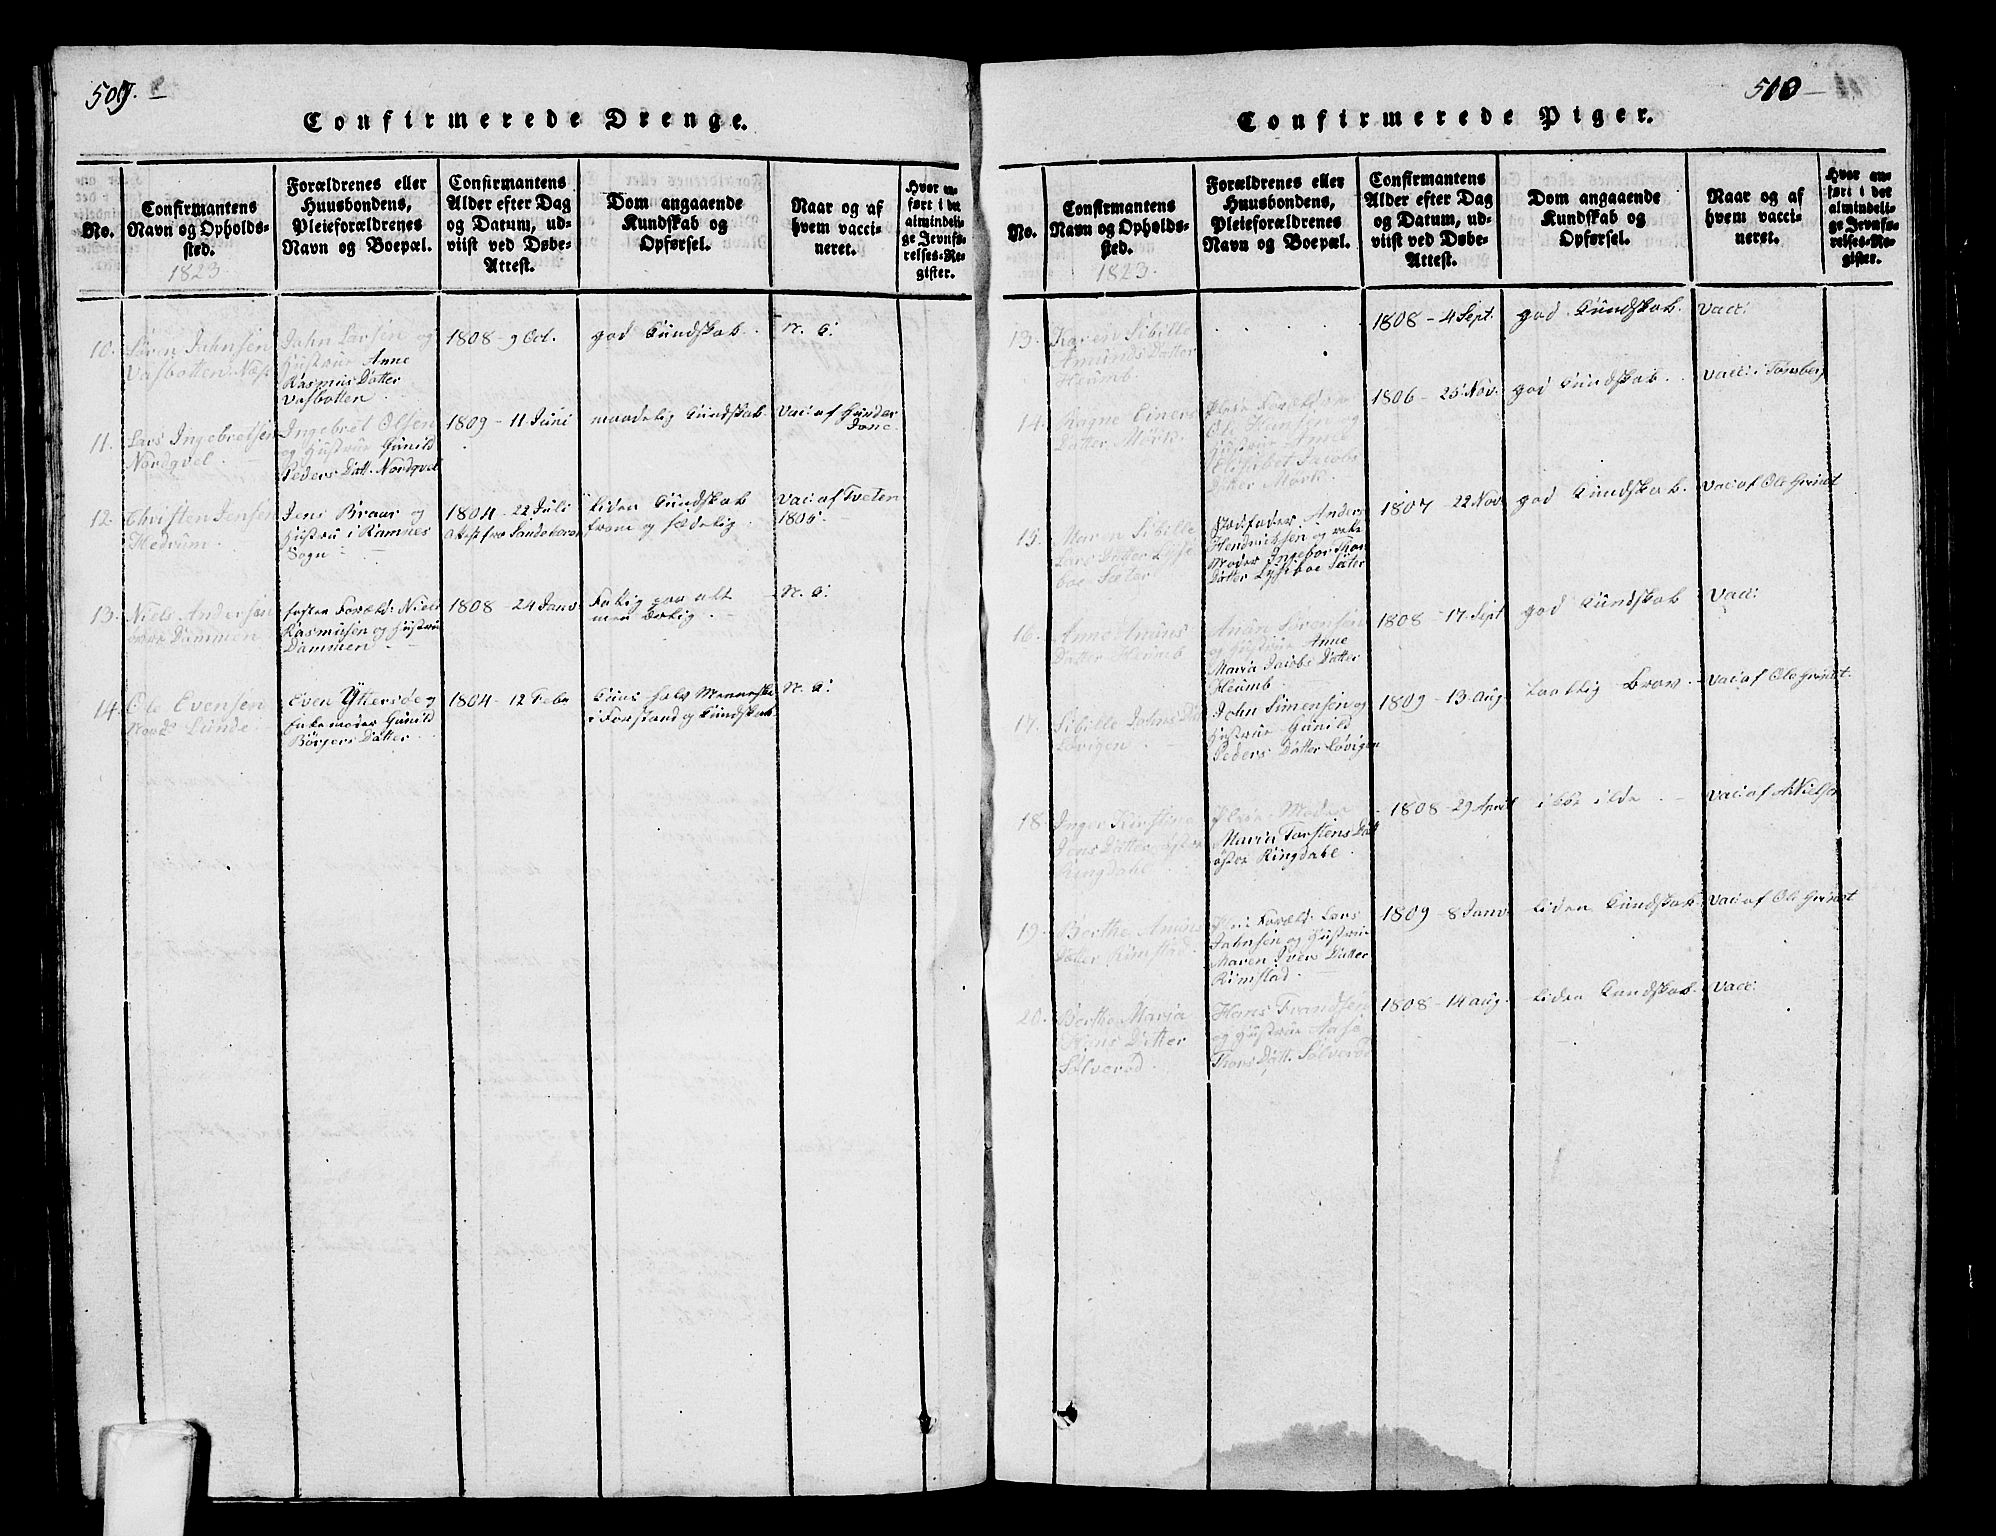 509.
Confirmerede Drenge.
No.
Confirmantens
Navn og Opholds-
sted.
1823
Forældrenes eller
Huusbondens,
Pleieforældrenes
Navn og Boepæl.
Confirmantens
Alder efter Dag
og Datum, ud-
viist ved Døbe-
Attest.
Dom angaaende
Kundskab og
Opførsel.
Naar og af
hvem vacci-
neret.
Hvor an-
ført i det
almindeli-
ge Jevnfø-
relses-Re-
gister.
10.
Søren Jahnsen
Vasbotten Næs
Jahn Larsen og
Hustrue Anne
Rasmus Datter
Vasbotten
1808 - 9 Oct.
god Kundskab.
N. C:
11.
Lars Ingebretsen
Nordqvel
Ingebret Olsen
og Hustrue Gunild
Peders Datt. Nordqvel
1809 - 11 Juni
maadelig Kundskab
Vac: af Gunder
12.
Christen Jensen
Hedrum
Jens Braar og
Hustru i Ramnes
Sogn
1804 - 22 Juli
Attest fra
liden Kundskab
from og sædelig
Vac: af Tveten
13.
Niels Andersen
Dammen
Foster Foræld: Niels
Rasmusen og Hustrue
Dammen
1808 - 24 Janv:
Fattig paa alt
men ærlig
N. C:
14.
Ole Evensen
Lunde
Even Yttersøe og
Enke moder Gunild
Børgers Datter
1804 - 12 Febr
Kuns halv Menneske
i Forstand og Kundskab
N. C:
510
Confirmerede Piger.
No.
Confirmantens
Navn og Opholds-
sted.
1823.
Forældrenes eller
Huusbondens,
Pleieforældrenes
Navn og Boepæl.
Confirmantens
Alder efter Dag
og Datum, ud-
viist ved Døbe-
Attest.
Dom angaaende
Kundskab og
Opførsel.
Naar og af
hvem vacci-
neret.
Hvor an-
ført i det
almindeli-
ge Jevnfø-
relses-Re-
gister.
13.
Karen Sibille
Amunds Datter
Heumb.
1808 - 4 Sept.
god Kundskab.
Vacc:
14.
Ragne Einers
Datter Mørk.
Pleie Foræld:
Ole Hansen og
Hustrue Anne
Elisabet Jacobs
Datter Mørk.
1806 - 25 Nov.
god Kundskab.
Vacc: i Tønsberg
15.
Maren Sibille
Lars Datter Lysse
boe Sæter
Stedfader Anders
Hendrichsen og
Moder Ingebor Thor
Datter Lysseboe Sæter
1807 - 22 Nov.
god Kundskab.
Vac: af Ole Grindt
16.
Anne Anuns
Datter Heumb
Anun Sørensen
og Hustrue Anne
Maria Jacobs Datter
Heumb
1808 - 17. Sept
god Kundskab
Vacc:
17.
Sibille Johns Datt
Løvigen
John Simensen og
Hustrue Gunild
Peders Datter Løvigen
1809 - 13 Aug.
taalelig Brav.
Vac: af Ole Grindt.
18.
Inger Kirstina
Jens Datter øster
Ringdahl
Pleie Moder
Maria Torstens Datt
øster Ringdahl.
1808 - 29 April
ikke ilde.
Vac: af A Nielsen
19.
Berthe Anuns
Datter Rimstad.
Pleie Foræld: Lars
Jahnsen og Hustrue
Maren Ivers Datter
Rimstad.
1809 - 8 Janv.
liden Kundskab.
Vac: af Ole Grindt
20.
Berthe Maria
Hans Datter
Sølverød.
Hans Frandsen
og Hustrue Aase
Thors Datt. Sølverød
1808 - 14 Aug.
liden Kundskab.
Vacc: